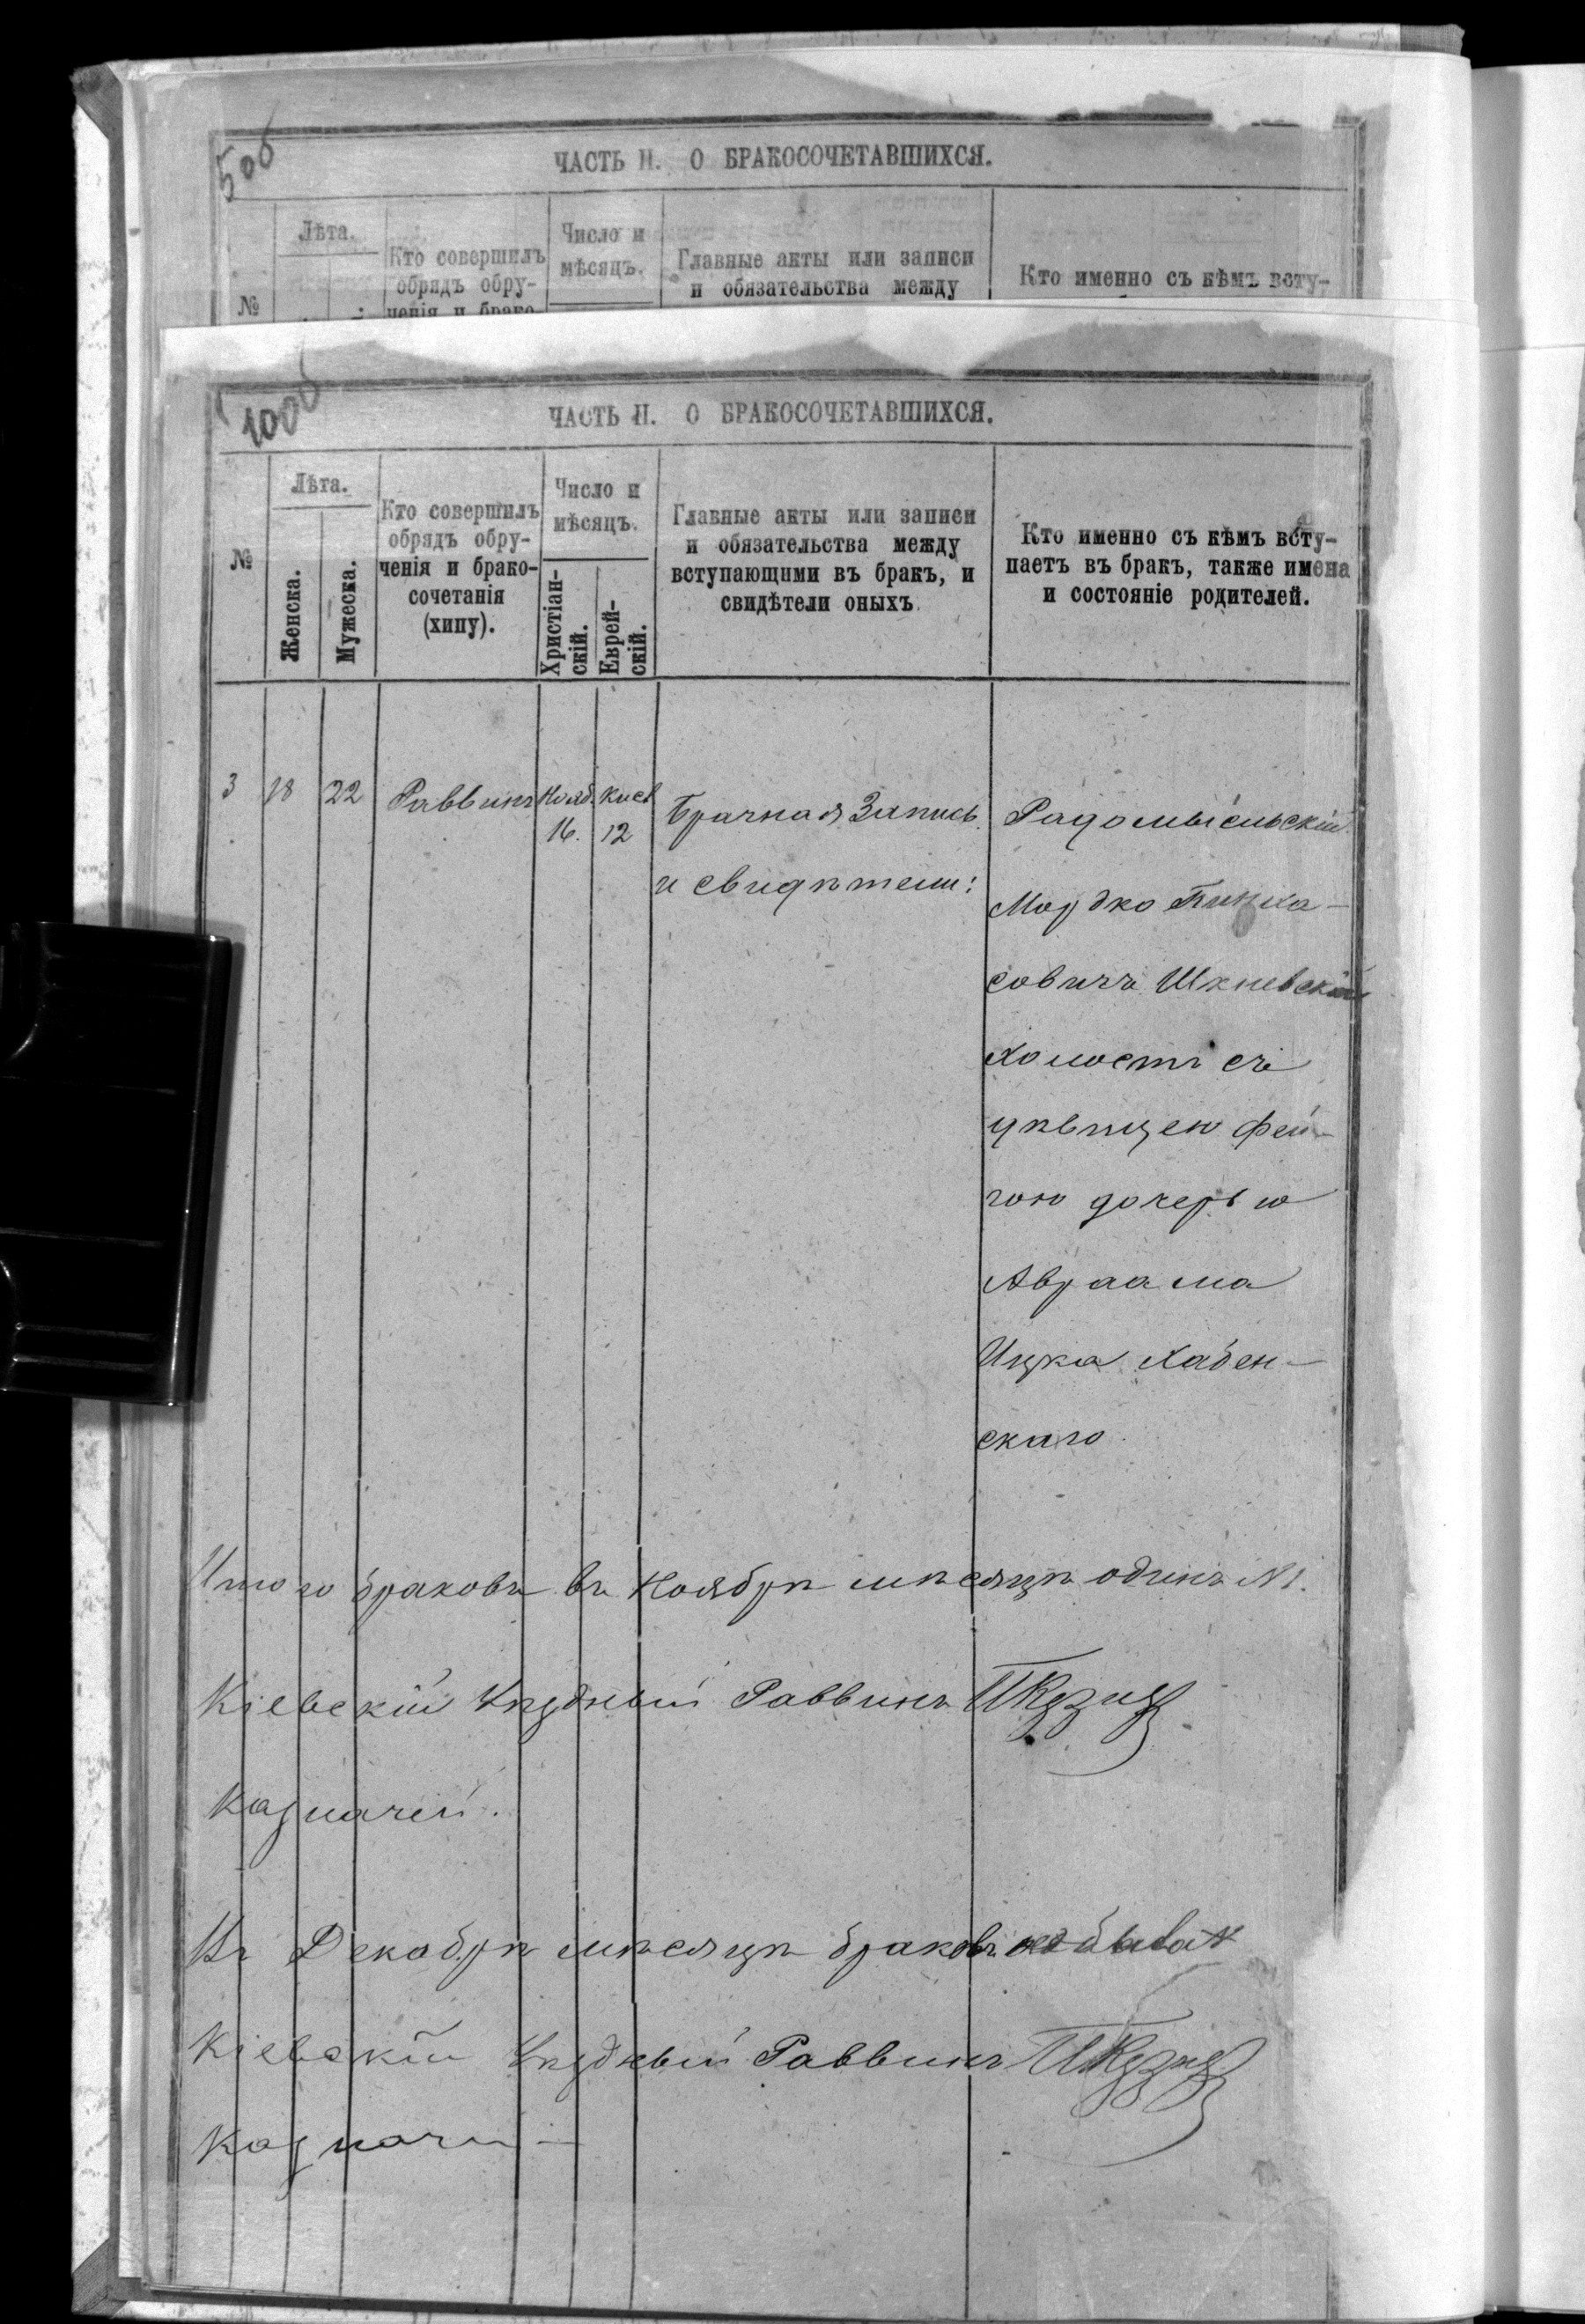 50об
ЧАСТЬ II. О БРАКОСОЧЕТАВШИХСЯ.
№
Лѣта.
Кто совершилъ
обрядъ обру-
ченія и брако-
Число и
мѣсяцъ.
Главные акты или записи
и обязательства между
Кто именно съ кѣмъ всту-
100об
ЧАСТЬ II. О БРАКОСОЧЕТАВШИХСЯ.
№
Лѣта.
Женска.
Мужеска.
Кто совершилъ
обрядъ обру-
ченія и брако-
сочетанія
(хипу).
Число и
мѣсяцъ.
Христіан-
скій.
Еврей-
скій.
Главные акты или записи
и обязательства между
вступающими въ бракъ, и
свидѣтели оныхъ.
Кто именно съ кѣмъ всту-
паетъ въ бракъ, также имена
и состояніе родителей.
3
18
22
Раввинъ
Нояб.
16.
Кисл
12
Брачная Запись
и свидѣтели:
Радомысльскій
Мордко Пинха-
совичъ Шкневскій
холостъ съ
дѣвицею Фей-
гою дочерью
Авраама
Ицка Хабен-
скаго.
Итого браковъ въ Ноябрѣ мѣсяцѣ одинъ №1.
Кіевскій Уѣздный Раввинъ
Казначей.
Въ Декабрѣ мѣсяцѣ браковъ
Кіевскій Уѣздный Раввинъ
Казначей